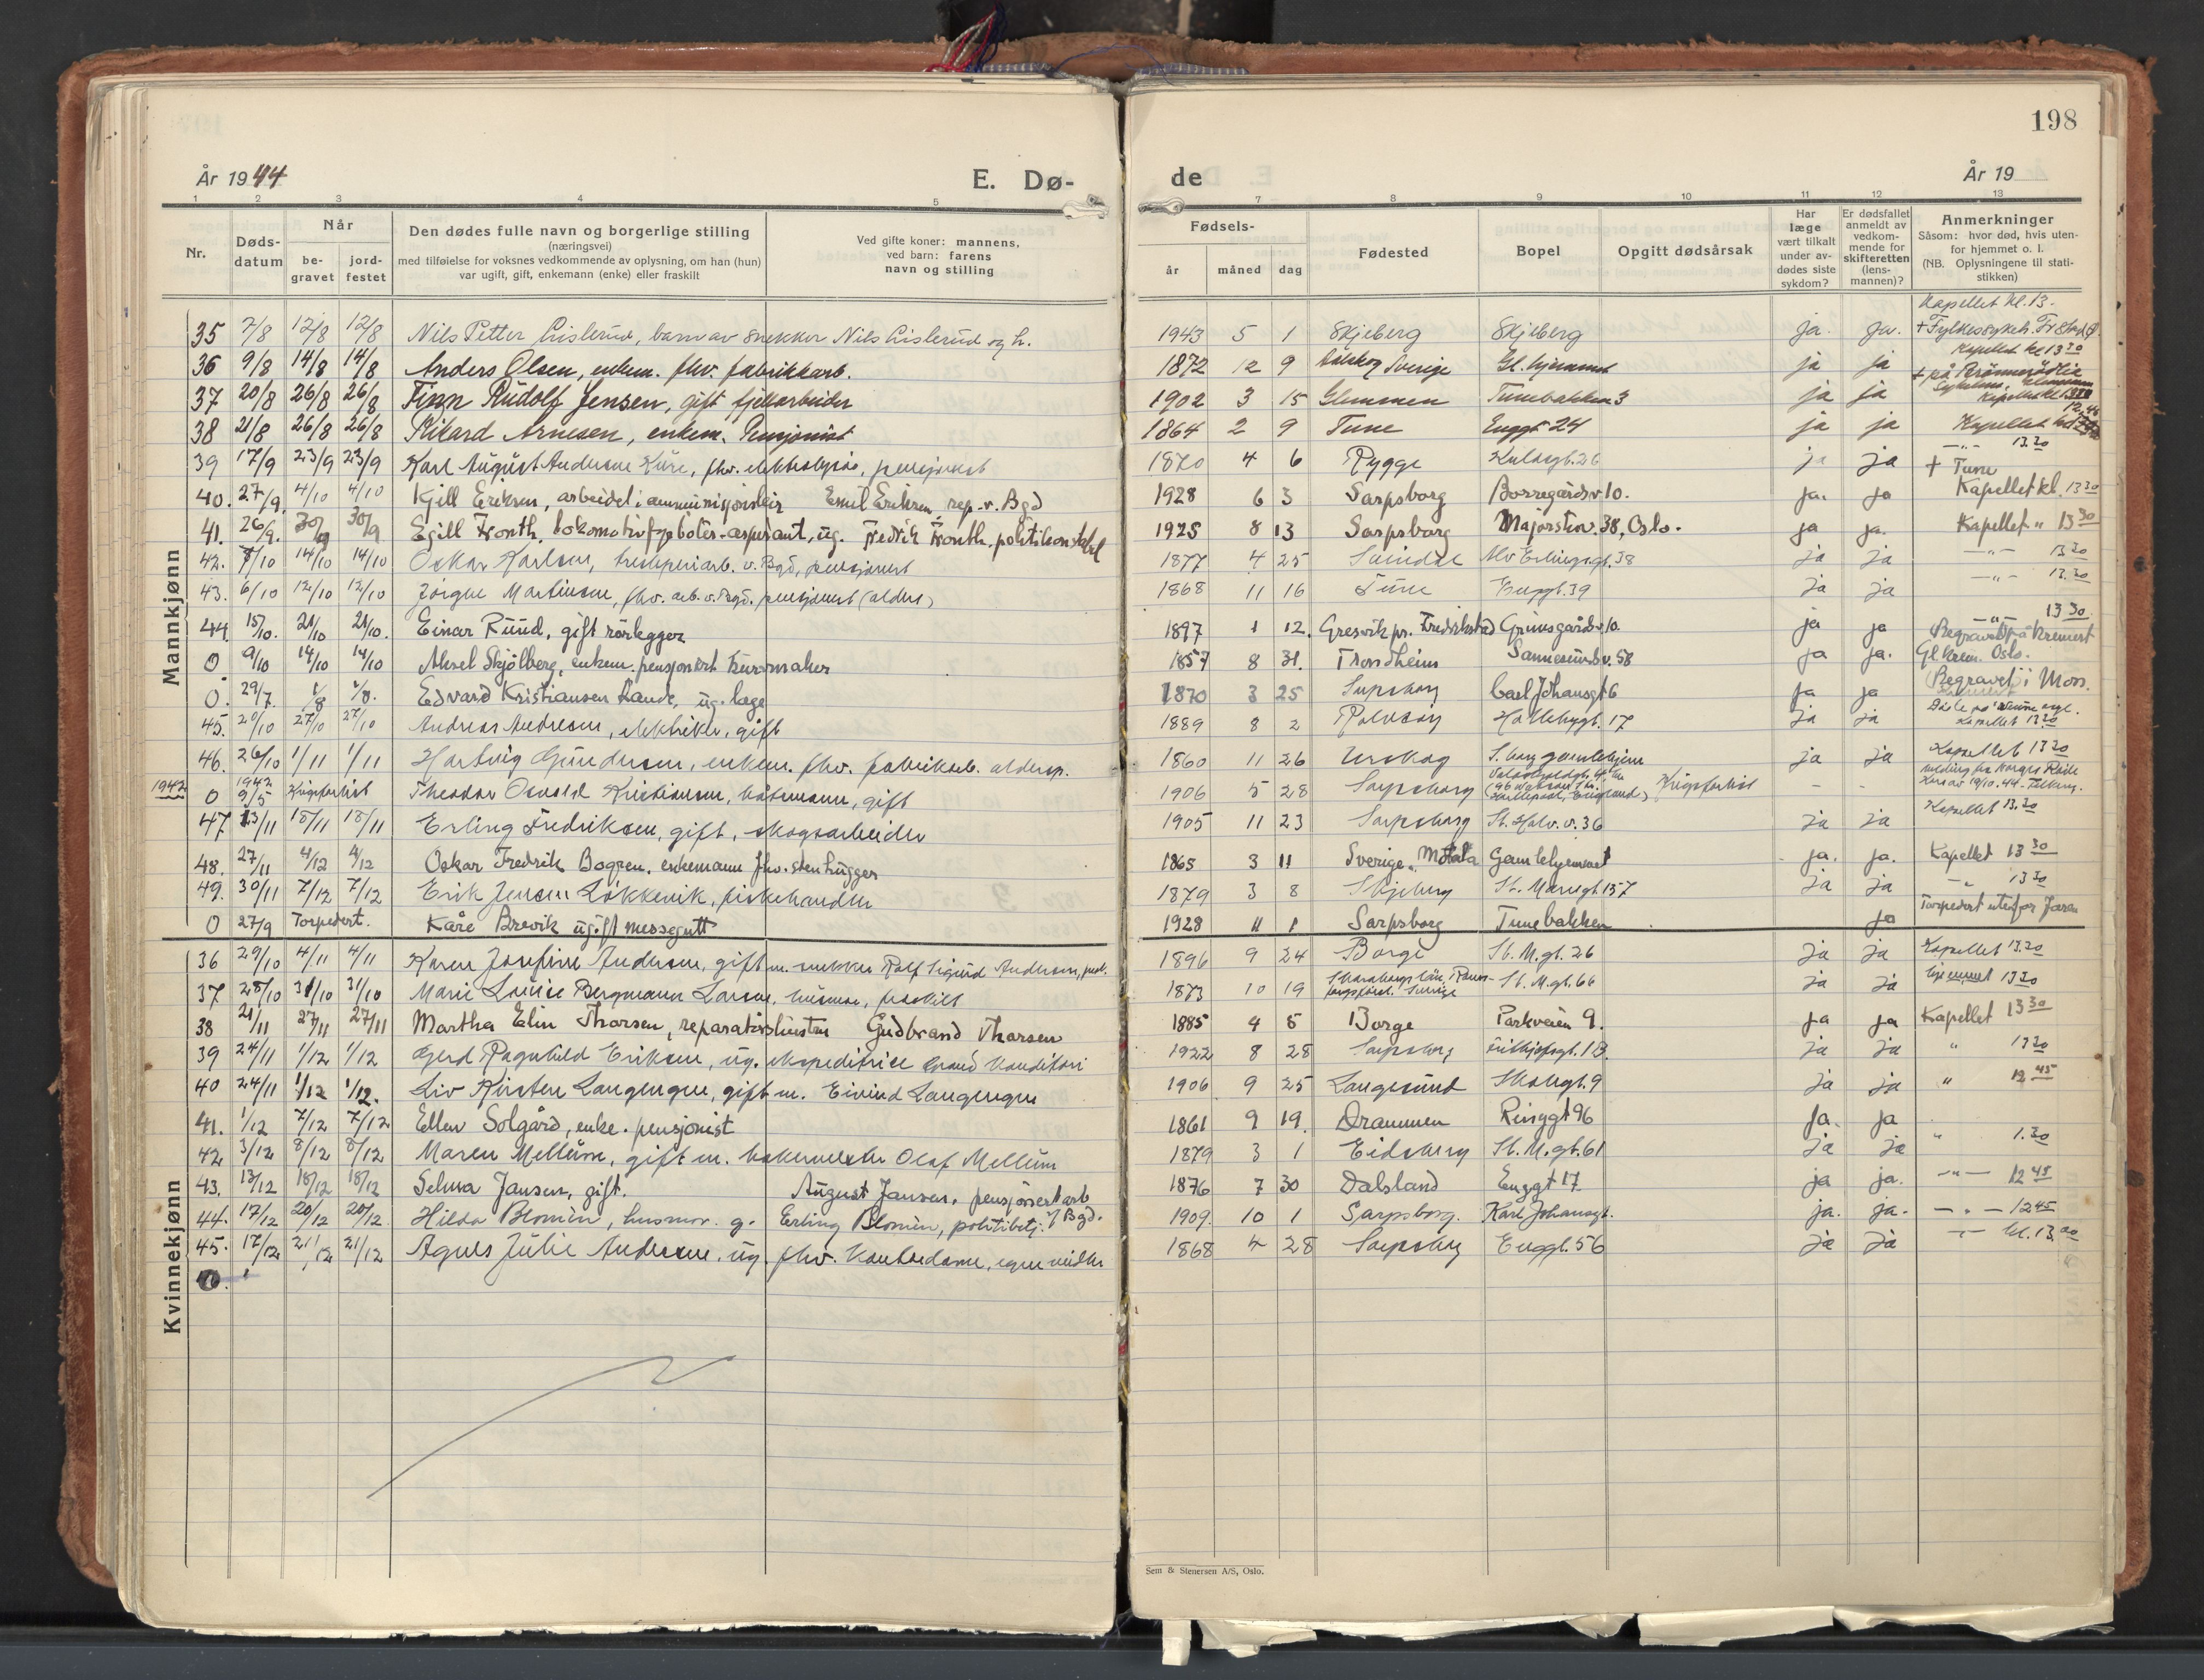 198
År 1944
E. Dø-
de
År 19
1 2 3 4 5 7 8 9 10 11 12 13
Nr.
Døds-
datum
Når
be-
gravet
jord-
festet
Den dødes fulle navn og borgerlige stilling
(næringsvei)
med tilføielse for voksnes vedkommende av oplysning, om han (hun)
var ugift, gift, enkemann (enke) eller fraskilt
Ved gifte koner: mannens,
ved barn: farens
navn og stilling
Fødsels-
år måned dag
Fødested
Bopel
Opgitt dødsårsak
Har
læge
vært tilkalt
under av-
dødes siste
sykdom?
Er dødsfallet
anmeldt av
vedkom-
mende for
skifteretten
(lens-
mannen)?
Anmerkninger
Såsom: hvor død, hvis uten-
for hjemmet o. l.
(NB. Oplysningene til stati-
stikken)
Mannkjønn
Kapellet kl. 13.
35 7/8 12/8 12/8 Nils Petter Lislerud, barn av snekker Nils Lislerud og h. 1943 5 1 Skjeberg Skjeberg ja. ja. + Fylkessykeh. Fr.stad
36 9/8 14/8 14/8 Anders Olsen, enkem. fhv. fabrikkarb. 1872 12 9 Sverige Gl.hjemmet ja ja Kapellet kl 13 30
37 20/8 26/8 26/8 Finn Rudolf Jensen, gift fjellarbeider 1902 3 15 Glemmen Tunebakken 3 ja ja
38 21/8 26/8 26/8 Rikard Arnesen, enkem. Pensjonist 1864 2 9 Tune Enggt 24 ja ja Kapellet
39 17/9 23/9 23/9 Karl August Andersen Kure, fhv. pensjonist 1870 4 6 Rygge 26 ja ja -"- 13.30
40. 27/9 4/10 4/10 Kjell Eriksen, arbeidet i ammunisjonsleir Emil Eriksen rep. v. Bgd 1928 6 3 Sarpsborg Borregårdsv 10. ja. ja + Tune Kapellet kl. 13 30
41. 26/9. 30/9 30/9 Egill Fronth, lokomotivfyrbøter-aspirant, ug. Fredrik Fronth. politikonstabel 1925 8 13 Sarpsborg Majorstuv. 38, Oslo. ja ja. Kapellet " 13 30
42. 7/10 14/10 14/10 Oskar Karlsen, v. Bgd, pensjonist 1877 4 25 Erlingsgt. 38 ja ja -"- 13.30
43. 6/10 12/10 12/10 Jørgen Martinsen, fhv. arb. v. Bgd. pensjonist (alders) 1868 11 16 Tune Enggt. 39 ja ja -"- 13.30
44. 15/10. 21/10 21/10. Einar Ruud, gift rørlegger 1897 1 12. Gresvik pr. Fredrikstad Grimsgårdsv. 10. ja ja -"- 13 30
0 9/10 14/10 14/10 Aksel Skjölberg, enkem. pensjonert kurvmaker 1857 8 31. Trondheim Sannesundsv. 58 ja ja. Gl. krem. Oslo.
0. 29/7 1/8 1/8. Edvard Kristiansen Rande, ug. læge 1870 3 25 Sarpsborg Carl Johansgt 6 ja ja (Begravet) i Moss.
45. 20/10 27/10 27/10 Andreas Andresen, elektriker, gift 1889 8 2 Rolvsøy 17 ja ja Kapellet 13 30
46. 26/10 1/11 1/11 Hartvig Gundersen, enkem. fhv. fabrikarb. aldersp. 1860 11 26 Urskog S.borg gamlehjem ja ja Kapellet 13 30
1942 0 1942 9/5 Krigsforlist Theodor Oswald Kristiansen, båtsmann, gift 1906 5 28 Sarpsborg Krigsforlist - - melding fra Norges Røde Kors av 19/10.44.
47 13/11 18/11 18/11 Erling Fredriksen, gift, skogsarbeider 1905 11 23 Sarpsborg St. Halv. v. 36 ja ja Kapellet 13.30
48. 27/11 4/12 4/12 Oskar Fredrik Bogren, enkemann fhv. stenhugger 1865 3 11 Sverige, Motala Gamlehjemmet ja. ja. Kapellet 13 30
49. 30/11 7/12 7/12 Erik Jensen Løkkevik, fiskehandler 1879 3 8 Skjeberg St. Mariegt 157 ja ja -"- 13 30
0 27/9 Torpedert. Kåre Brevik ugift messegutt 1928 11 1 Sarpsborg Tunebakken ja Torpedert utenfor Jæren
Kvinnekjønn
36 29/10 4/11 4/11 Karen Josefine Andersen, gift m. snekker Rolf Sigurd Andersen 1896 9 24 Borge St. M.gt. 26 ja ja Kapellet 13.30
37 25/10 31/10 31/10 Marie Louise Bergmann Larsen, husmor, fraskilt 1873 10 19 Skaraborgs län, Sverige St. M.gt. 66 ja ja Hjemmet 13 30
38 21/11 27/11 27/11 Martha Elin Thorsen, Gudbrand Thorsen 1885 4 5 Borge Parkveien 9. ja ja Kapellet 13 30
39 24/11 1/12 1/12 Gerd Ragnhild Eriksen, ug. ekspeditrice Grand Konditori 1922 8 28 Sarpsborg Frithjofsgt. 12. ja ja " 13 30
40 24/11 1/12 1/12. Liv Kirsten Langengen, gift m. Eivind Langengen 1906 9 25 Langesund Skolegt. 9 ja ja " 12 45
41. 1/12 7/12 7/12 Ellen Solgård, enke. pensjonist 1861 9 19. Drammen Ringgt 96 ja. ja
42 3/12 8/12 8/12 Maren Mellum, gift m. bakermester Olaf Mellum 1879 3 1 Eidsberg St. M.gt. 61 ja ja " 1.30
43. 13/12 18/12 18/12 Selma Jansen, gift. August Jansen, pensjonert arb 1876 7 30 Dalsland Enggt 17 ja ja. -"- 12 45
44. 17/12 20/12 20/12 Hilda Blomén, husmor. g. Erling Blomén, politibetj. v/ Bgd. 1909. 10 1 Sarpsborg. Karl Johansgt. ja. ja. -"- 12 45
45. 17/12 21/12 21/12 Agnes Julie Andersen, ug. fhv. Kontordame, egne midler 1868 4 28 Sarpsborg Enggt. 56 ja ja -"- kl. 13.00
Sem & Stenersen A/S, Oslo.